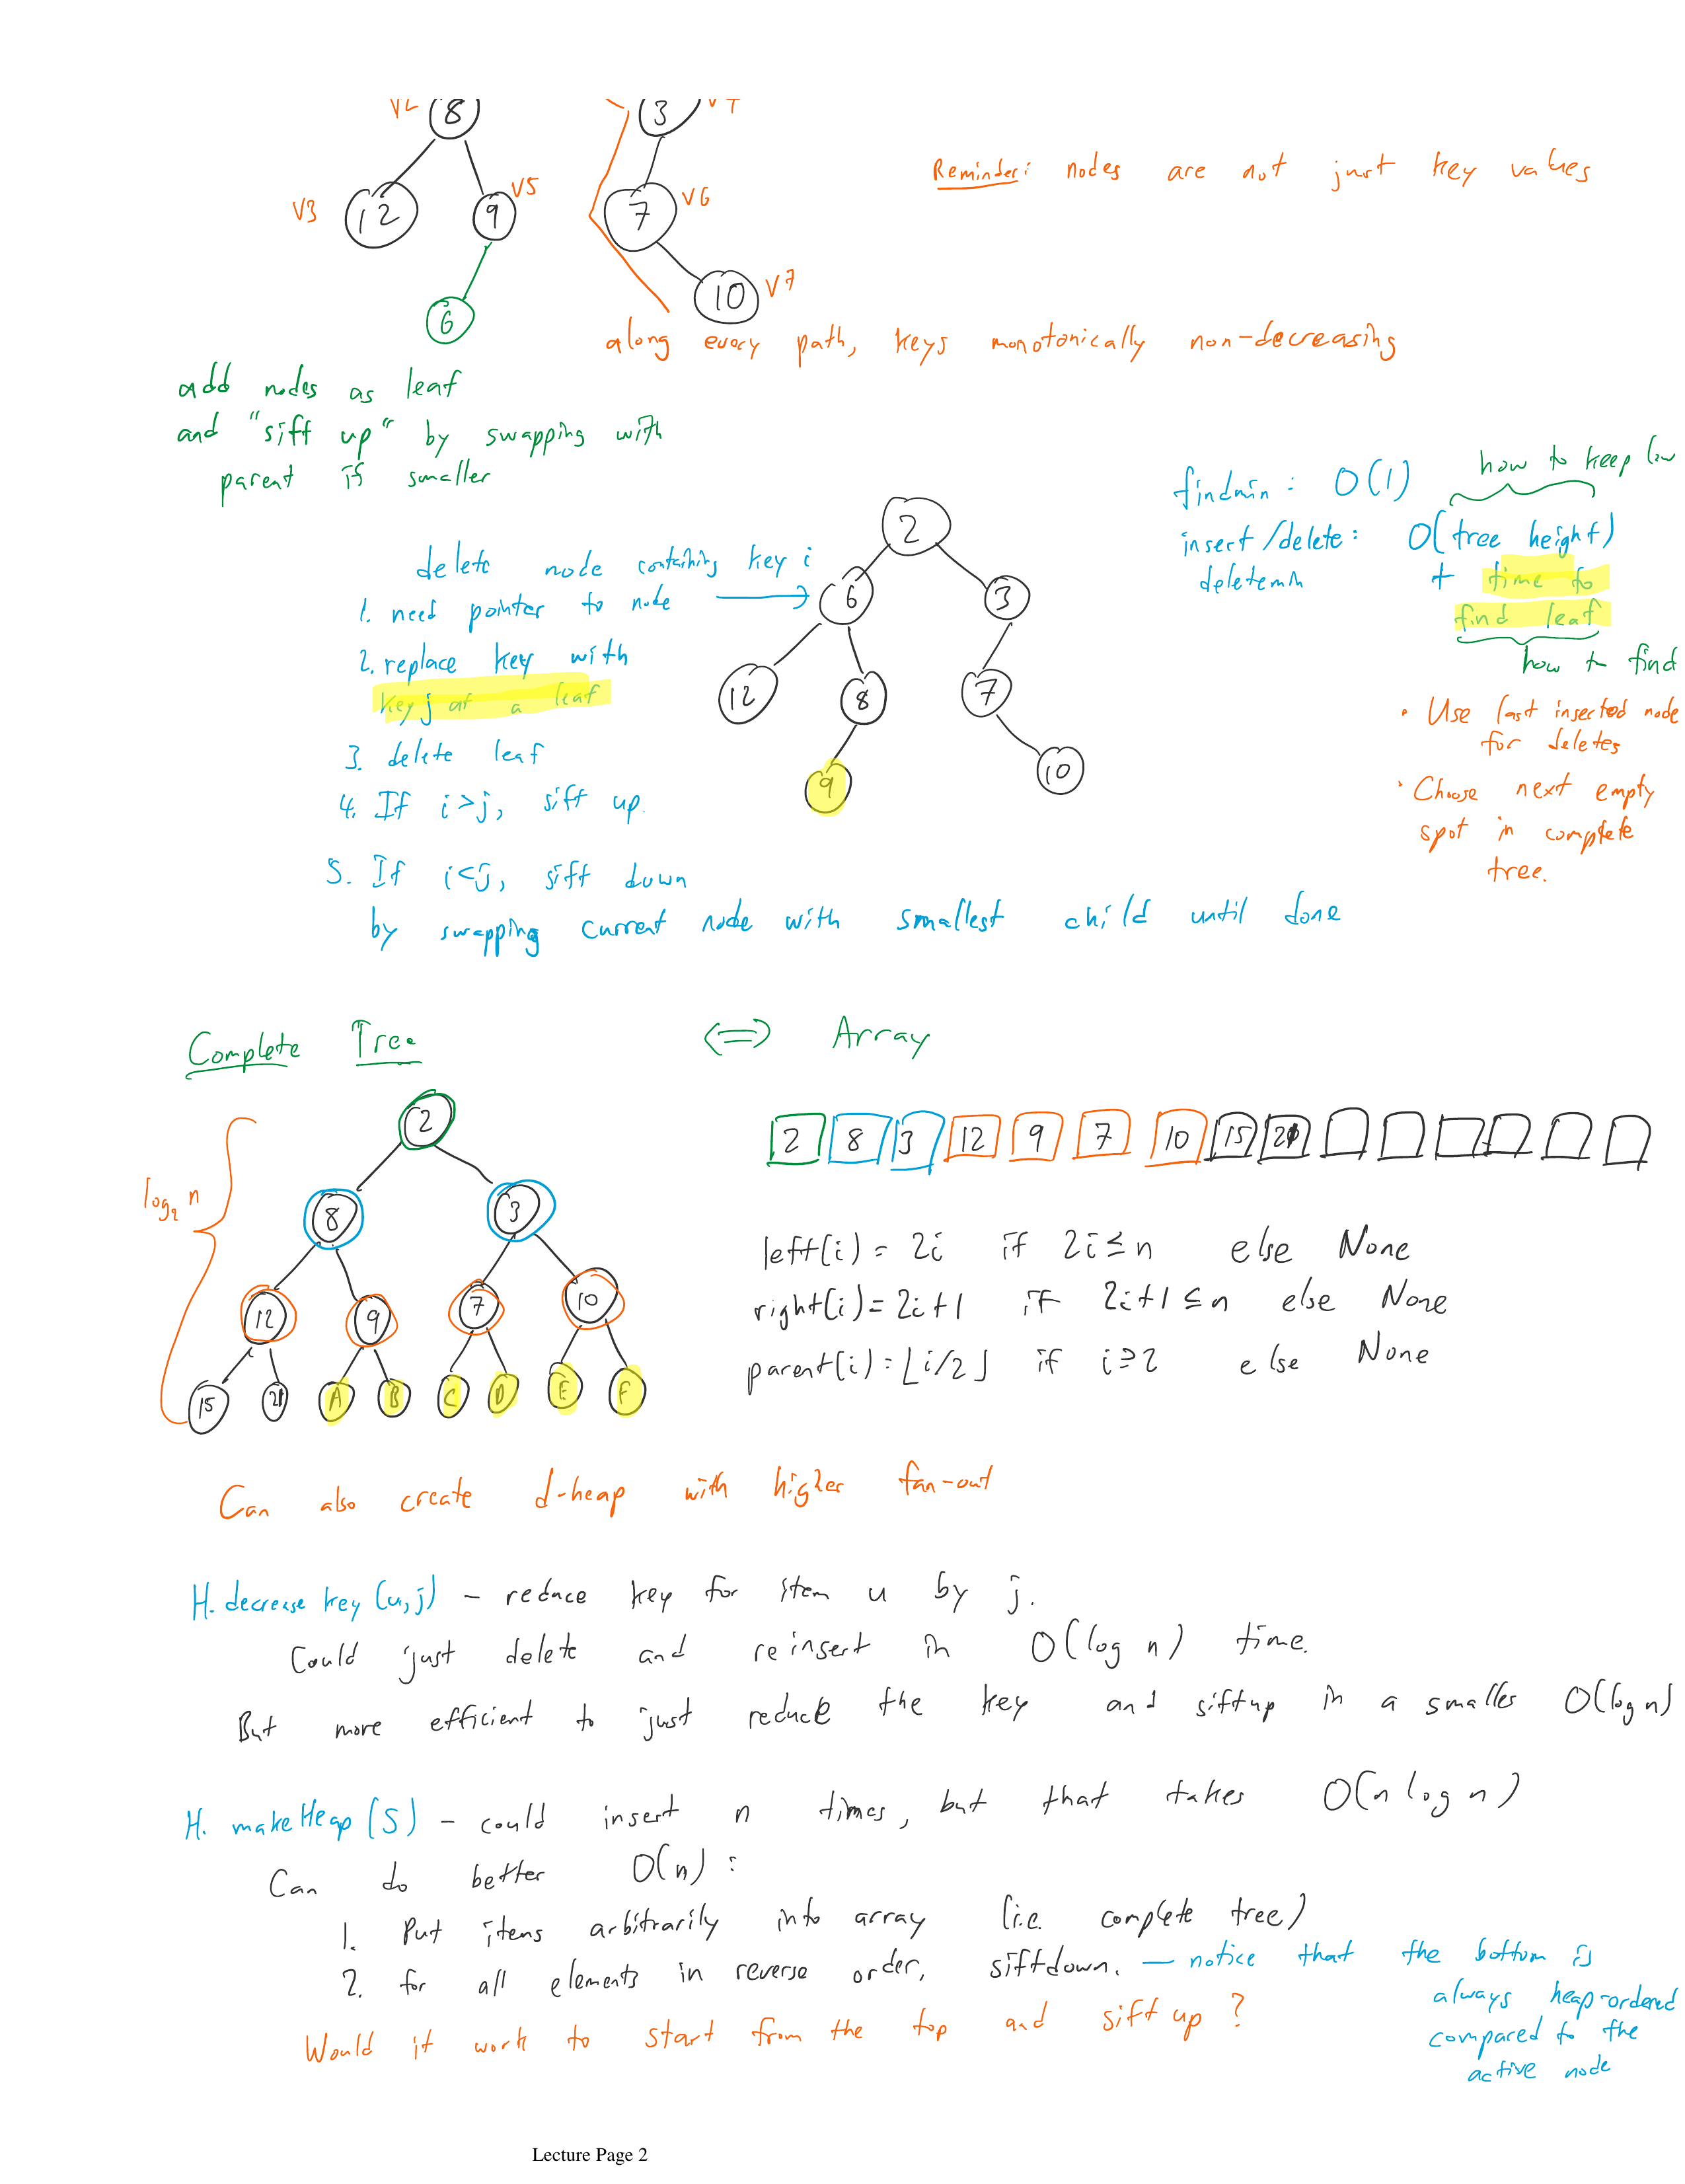 V2 8 3 V4
Reminder: nodes are not just key values
V3 12 9 V5 7 V6
6 10 V7
along every path, keys monotonically non-decreasing
add nodes as leaf
and "siff up" by swapping with
parent if smaller
how to keep low
findmin: O(1)
insert/delete: O(tree height)
deletemin + time to
find leaf
how to find
• Use last inserted node
for deletes
• Choose next empty
spot in complete
tree.
delete node containing key i
1. need pointer to node
2. replace key with
key j at a leaf
3. delete leaf
4. If i>j, siff up.
5. If i<j, siff down
by swapping current node with smallest child until done
2
6 3
12 8 7
9 10
Complete Tree <=> Array
log₂ n
2
8 3
12 9 7 10
15 21 A B C D E F
2 8 3 12 9 7 10 15 21
left(i) = 2i if 2i ≤ n else None
right(i) = 2i+1 if 2i+1 ≤ n else None
parent(i) = ⌊i/2⌋ if i ≥ 2 else None
Can also create d-heap with higher fan-out
H. decrease key (u,j) - reduce key for item u by j.
Could just delete and reinsert in O(log n) time.
But more efficient to just reduce the key and siftup in a smaller O(log n)
H. makeHeap (S) - could insert n times, but that takes O(n log n)
Can do better O(n):
1. Put items arbitrarily into array (i.e. complete tree)
2. for all elements in reverse order, siftdown. — notice that the bottom is
always heap-ordered
compared to the
active node
Would it work to start from the top and sift up?
Lecture Page 2